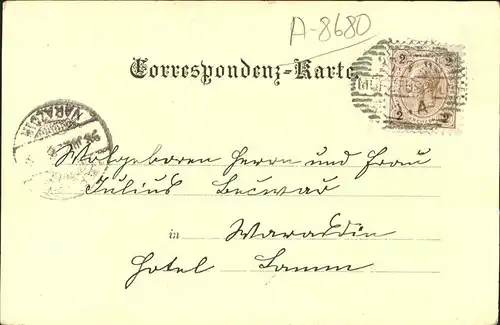 A-8680
Correspondenz-Karte
2 2
2 2
A
VARAŽDIN
Wolgeboren Herrn und Frau
Julius Becwar
in Warasdin
Hotel Lamm